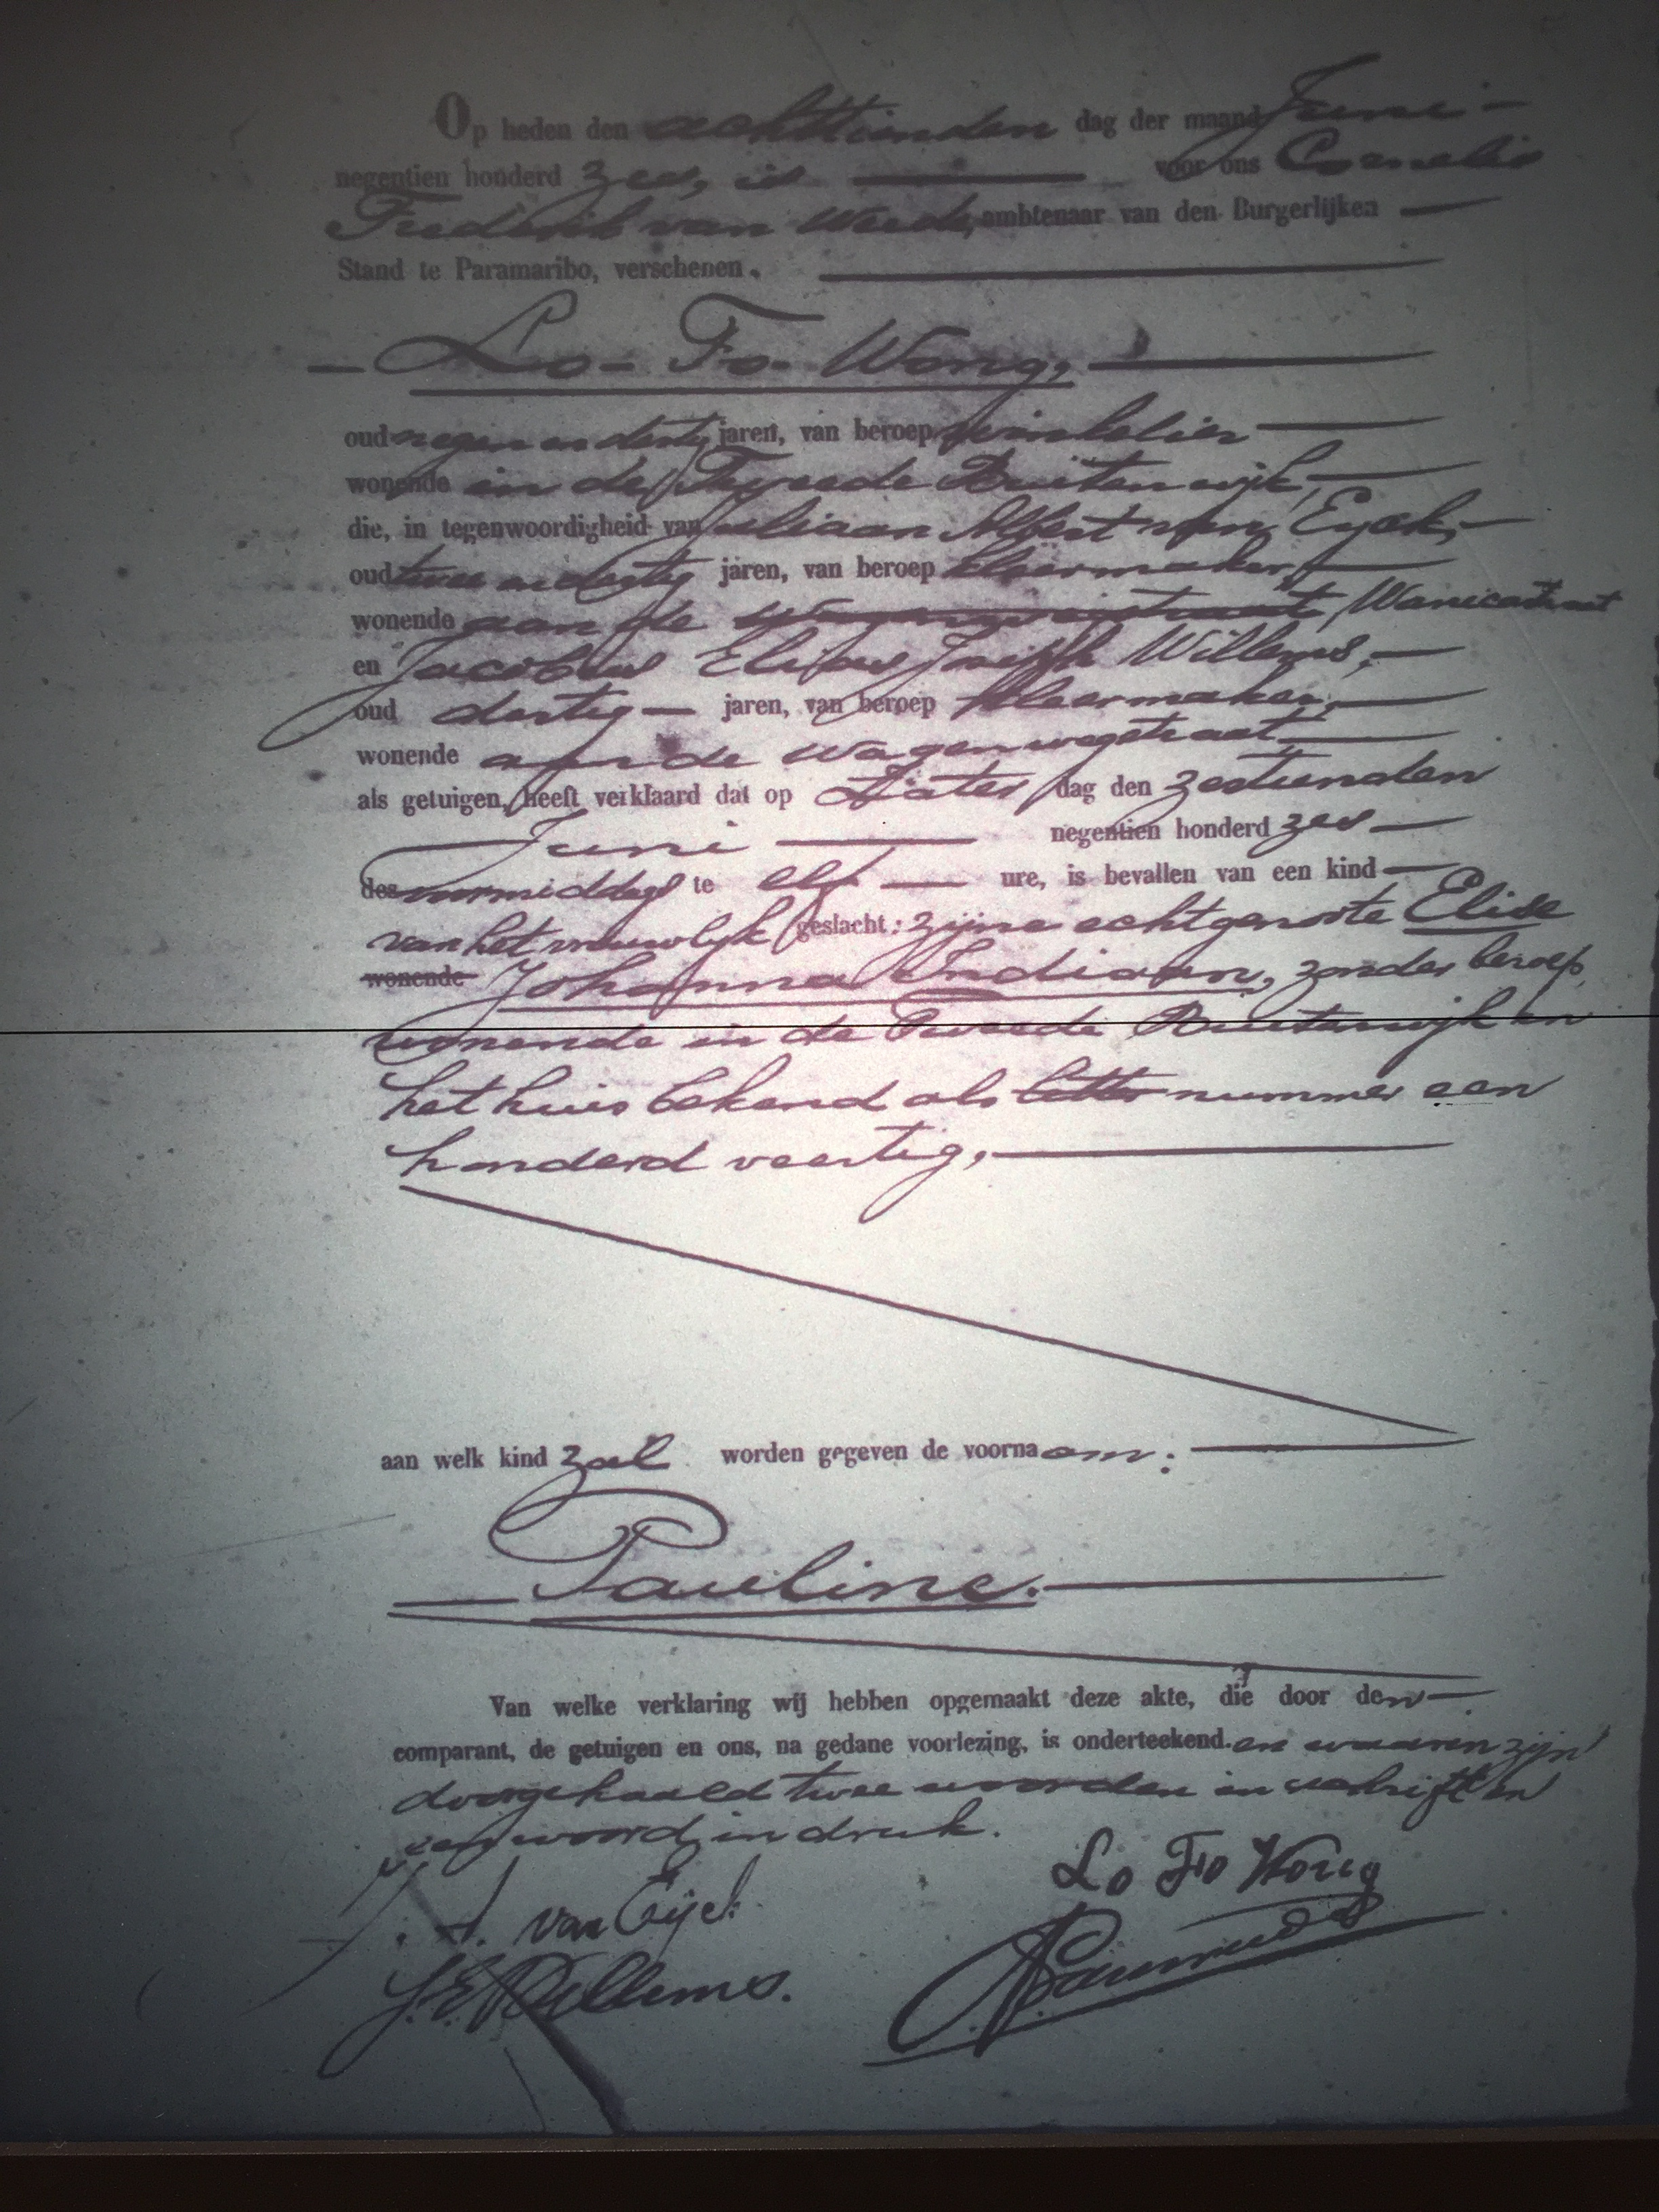 Op heden den achttienden dag der maand Juni
negentien honderd zes, is voor ons Cornelis
Frederik van Weede, ambtenaar van den Burgerlijken
Stand te Paramaribo, verschenen.
Lo-Fo-Wong,
oud negen en dertig jaren, van beroep winkelier
wonende in de Tweede Buitenwijk,
die, in tegenwoordigheid van Juliaan Albert van Eyck,
oud twee en dertig jaren, van beroep kleermaker,
wonende aan de Wagenwegstraat Wanicastraat
en Jacobus Elias Joseph Willems,
oud dertig jaren, van beroep kleermaker,
wonende aan de Wagenwegstraat
als getuigen, heeft verklaard dat op Zater dag den zestienden
Juni negentien honderd zes
des voormiddags te elf ure, is bevallen van een kind
van het vrouwelijk geslacht: zijne echtgenoote Elise
wonende Johanna Indiaan, zonder beroep,
wonende in de Tweede Buitenwijk in
het huis bekend als letter nummer een
honderd veertig,
aan welk kind zal worden gegeven de voornaam:
Pauline.
Van welke verklaring wij hebben opgemaakt deze akte, die door den
comparant, de getuigen en ons, na gedane voorlezing, is onderteekend. en waarin zijn
doorgehaald twee woorden in schrift en
een woord in druk.
Lo Fo Wong
J. A. van Eijck
J. E. Willems.